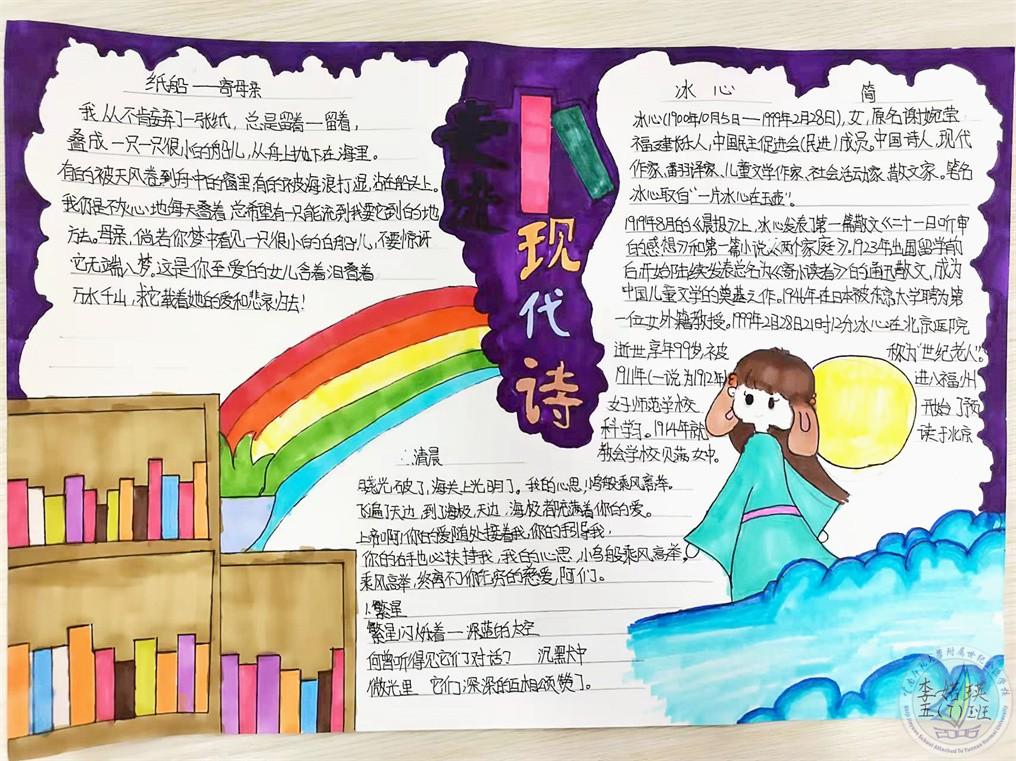 纸船——寄母亲
我从不肯妄弃了一张纸，总是留着—留着，
叠成一只一只很小的船儿，从舟上抛下在海里。
有的被天风卷到舟中的窗里有的被海浪打湿，沾在船头上。
我仍是不灰心地每天叠着 总希望有一只能流到我要它到的地
方去。母亲，倘若你梦中看见一只很小的白船儿，不要惊讶
它无端入梦，这是你至爱的女儿含着泪叠着
万水千山，求它载着她的爱和悲哀归去！
现
代
诗
冰心 简
冰心(1900年10月5日—1999年2月28日)，女，原名谢婉莹
福建长乐人，中国民主促进会(民进)成员，中国诗人，现代
作家、翻译家、儿童文学作家、社会活动家、散文家。笔名
冰心取自“一片冰心在玉壶”。
1919年8月的《晨报》上，冰心发表了第一篇散文《二十一日听审
的感想》和第一篇小说《两个家庭》。1923年出国留学前
后开始陆续发表总名为《寄小读者》的通讯散文，成为
中国儿童文学的奠基之作。1946年在日本被东京大学聘为第
一位女外籍教授。1999年2月28日21时12分冰心在北京医院
逝世享年99岁，被 称为“世纪老人”。
1911年(一说为1912年) 进入福州
女子师范学校 开始了预
科学习。1914年就 读于北京
教会学校贝满女中。
清晨
晓光破了，海关上光明了。我的心思，小鸟般乘风高举。
飞遍了天边，到了海极，天边，海极都充满着你的爱。
上帝啊！你的爱随处接着我，你的手引导我，
你的右手也必扶持我，我的心思，小鸟般乘风高举，
乘风高举，终离不了你无穷的慈爱，阿们。
1.繁星
繁星闪烁着—深蓝的太空
何曾听得见它们对话？ 沉默中
微光里 它们深深的互相颂赞了。
五(7)班